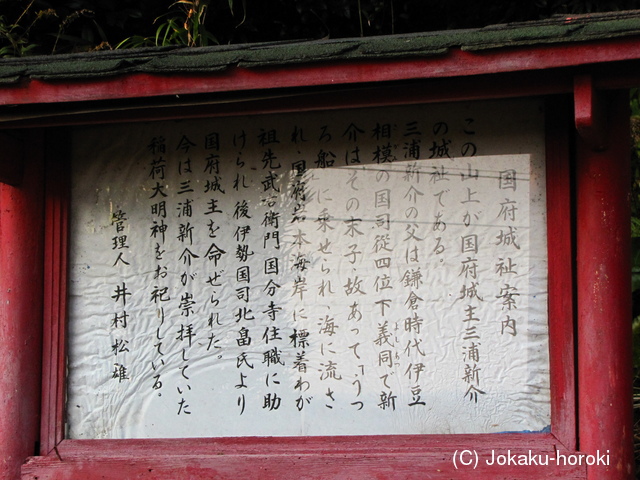 国府城祉案内
この山上が国府城主三浦新介
の城祉である。
三浦新介の父は鎌倉時代伊豆
相模の国司従四位下義同で新
介はその末子・故あって「うつ
ろ船」に乗せられ 海に流さ
れ・国府岩本海岸に標着わが
祖先武右衛門国分寺住職に助
けられ 後伊勢国司北畠氏より
国府城主を命ぜられた。
今は三浦新介が崇拝していた
稲荷大明神をお祀りしている。
管理人 井村松雄
(C) Jokaku-horoki